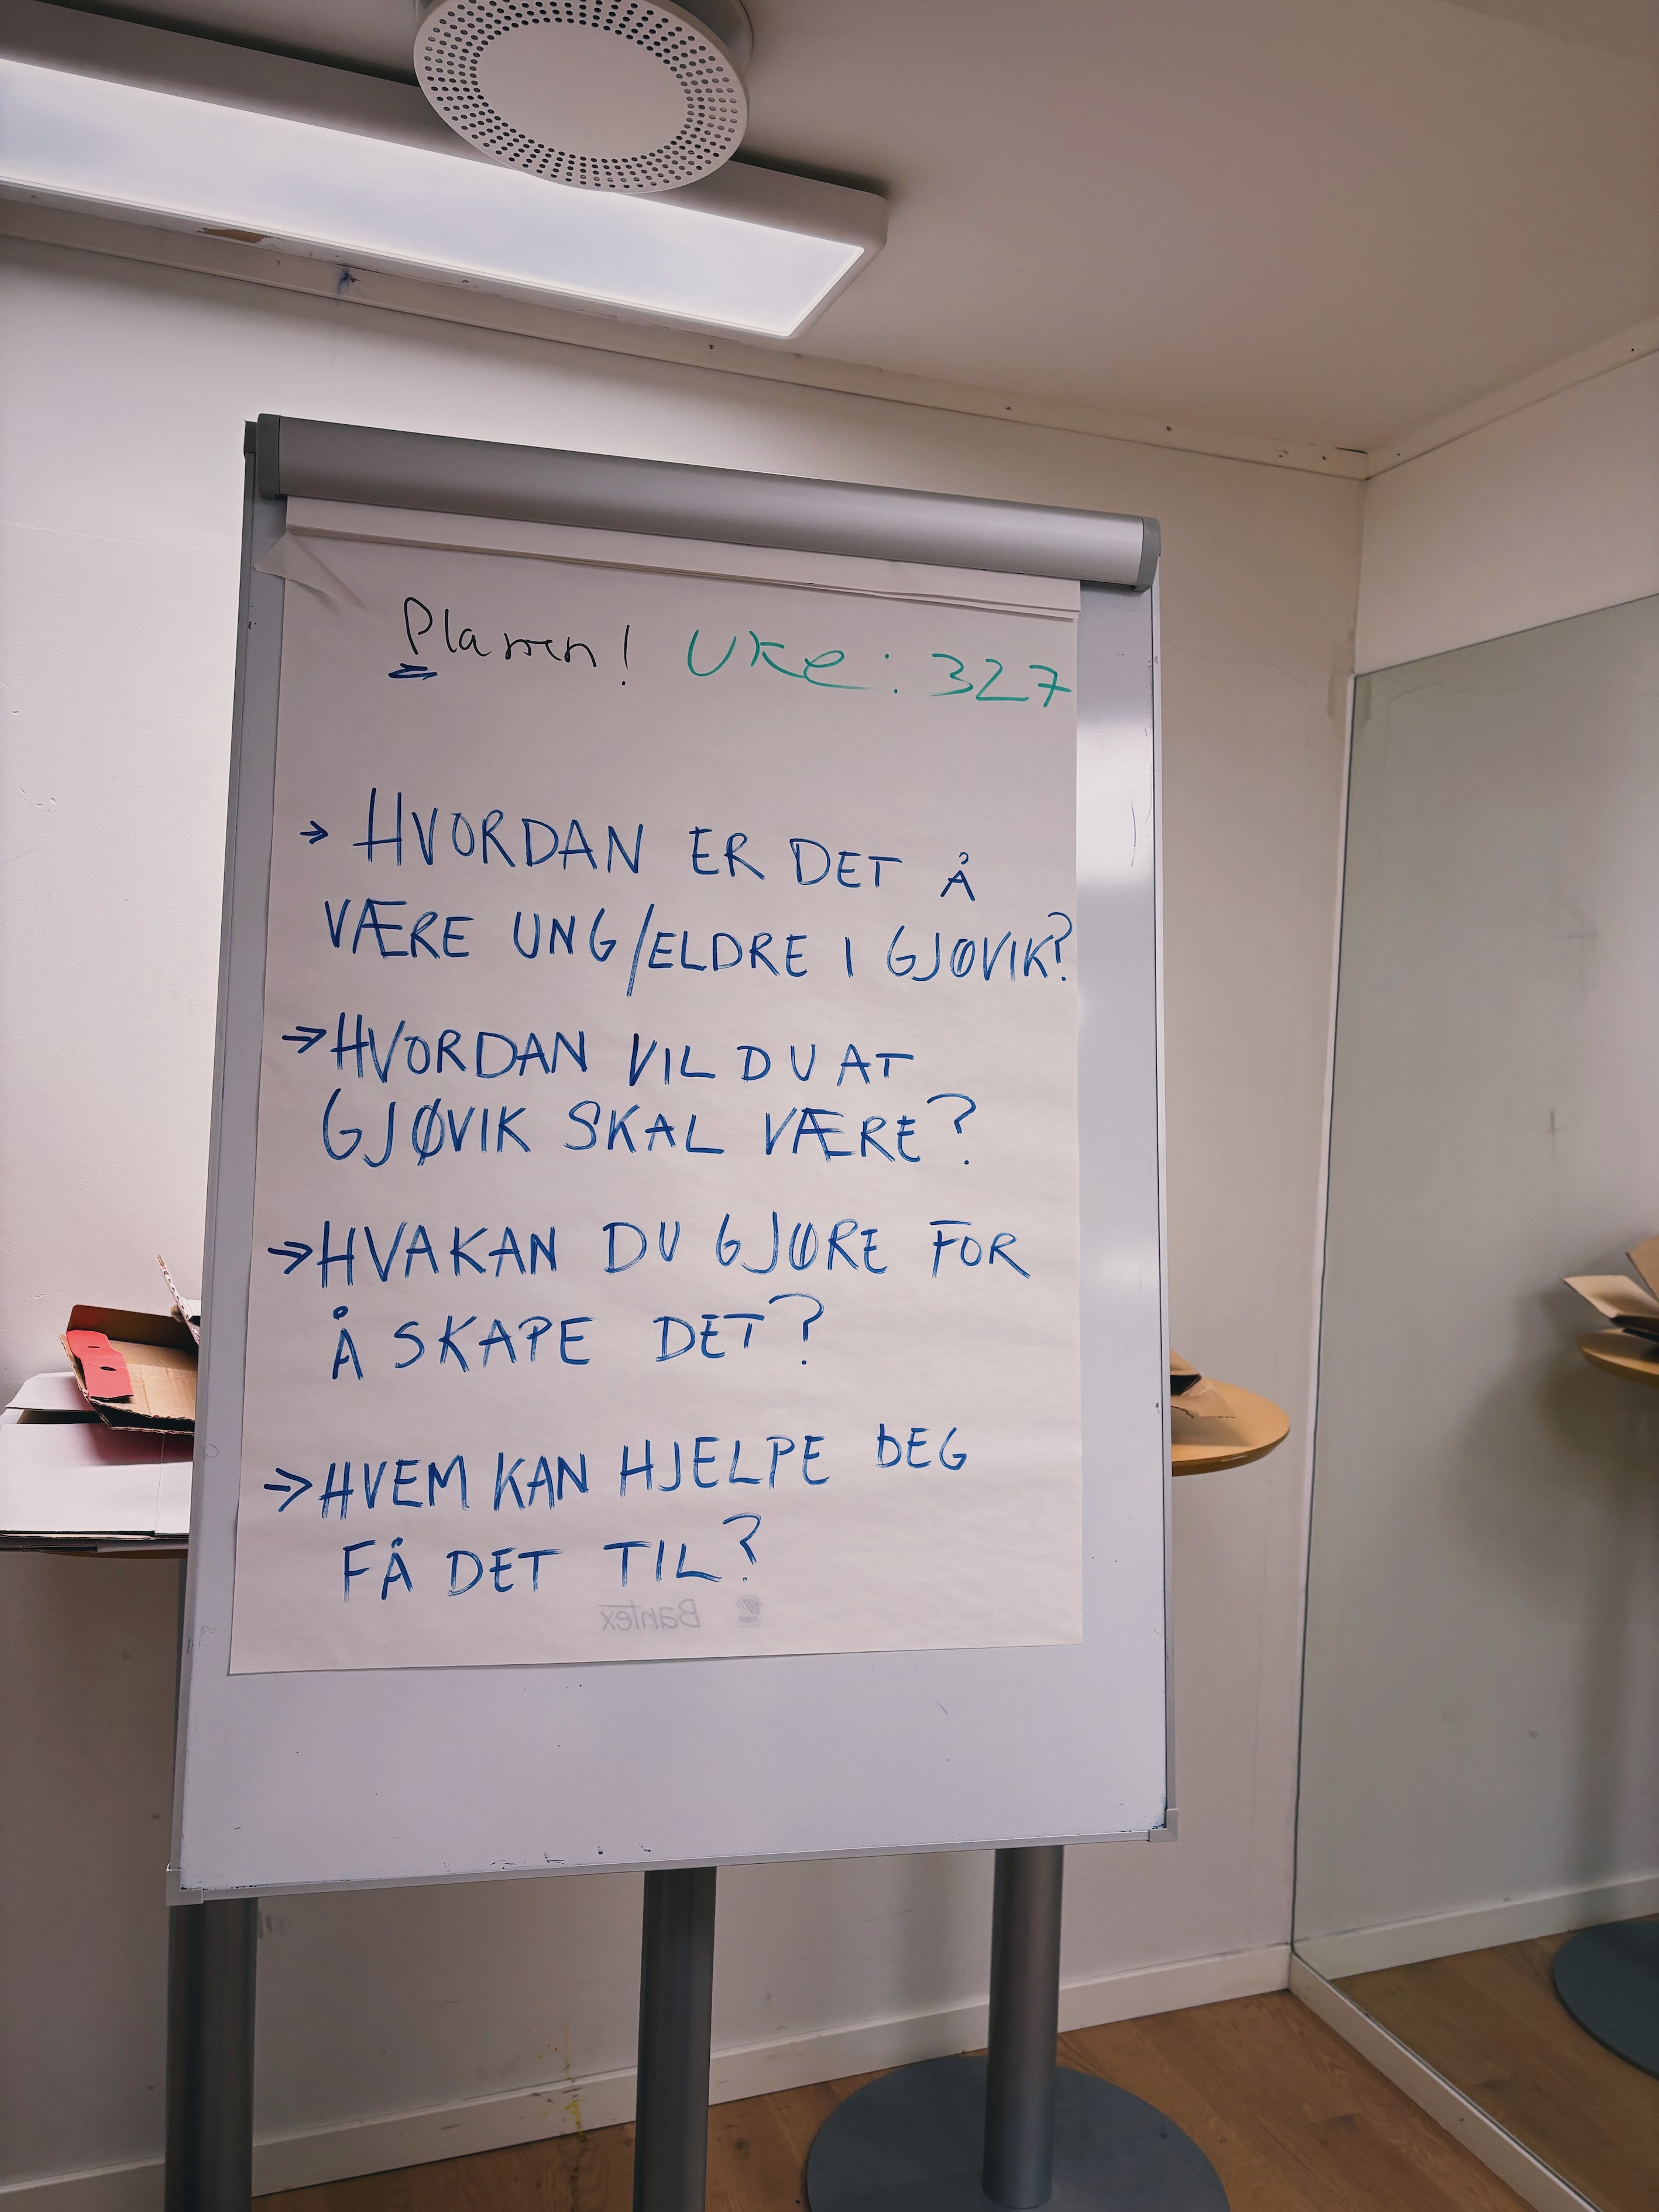 Planen! Uke: 327
→ HVORDAN ER DET Å
VÆRE UNG/ELDRE I GJØVIK?
→ HVORDAN VIL DU AT
GJØVIK SKAL VÆRE?
→ HVA KAN DU GJØRE FOR
Å SKAPE DET?
→ HVEM KAN HJELPE DEG
FÅ DET TIL?
Bantex